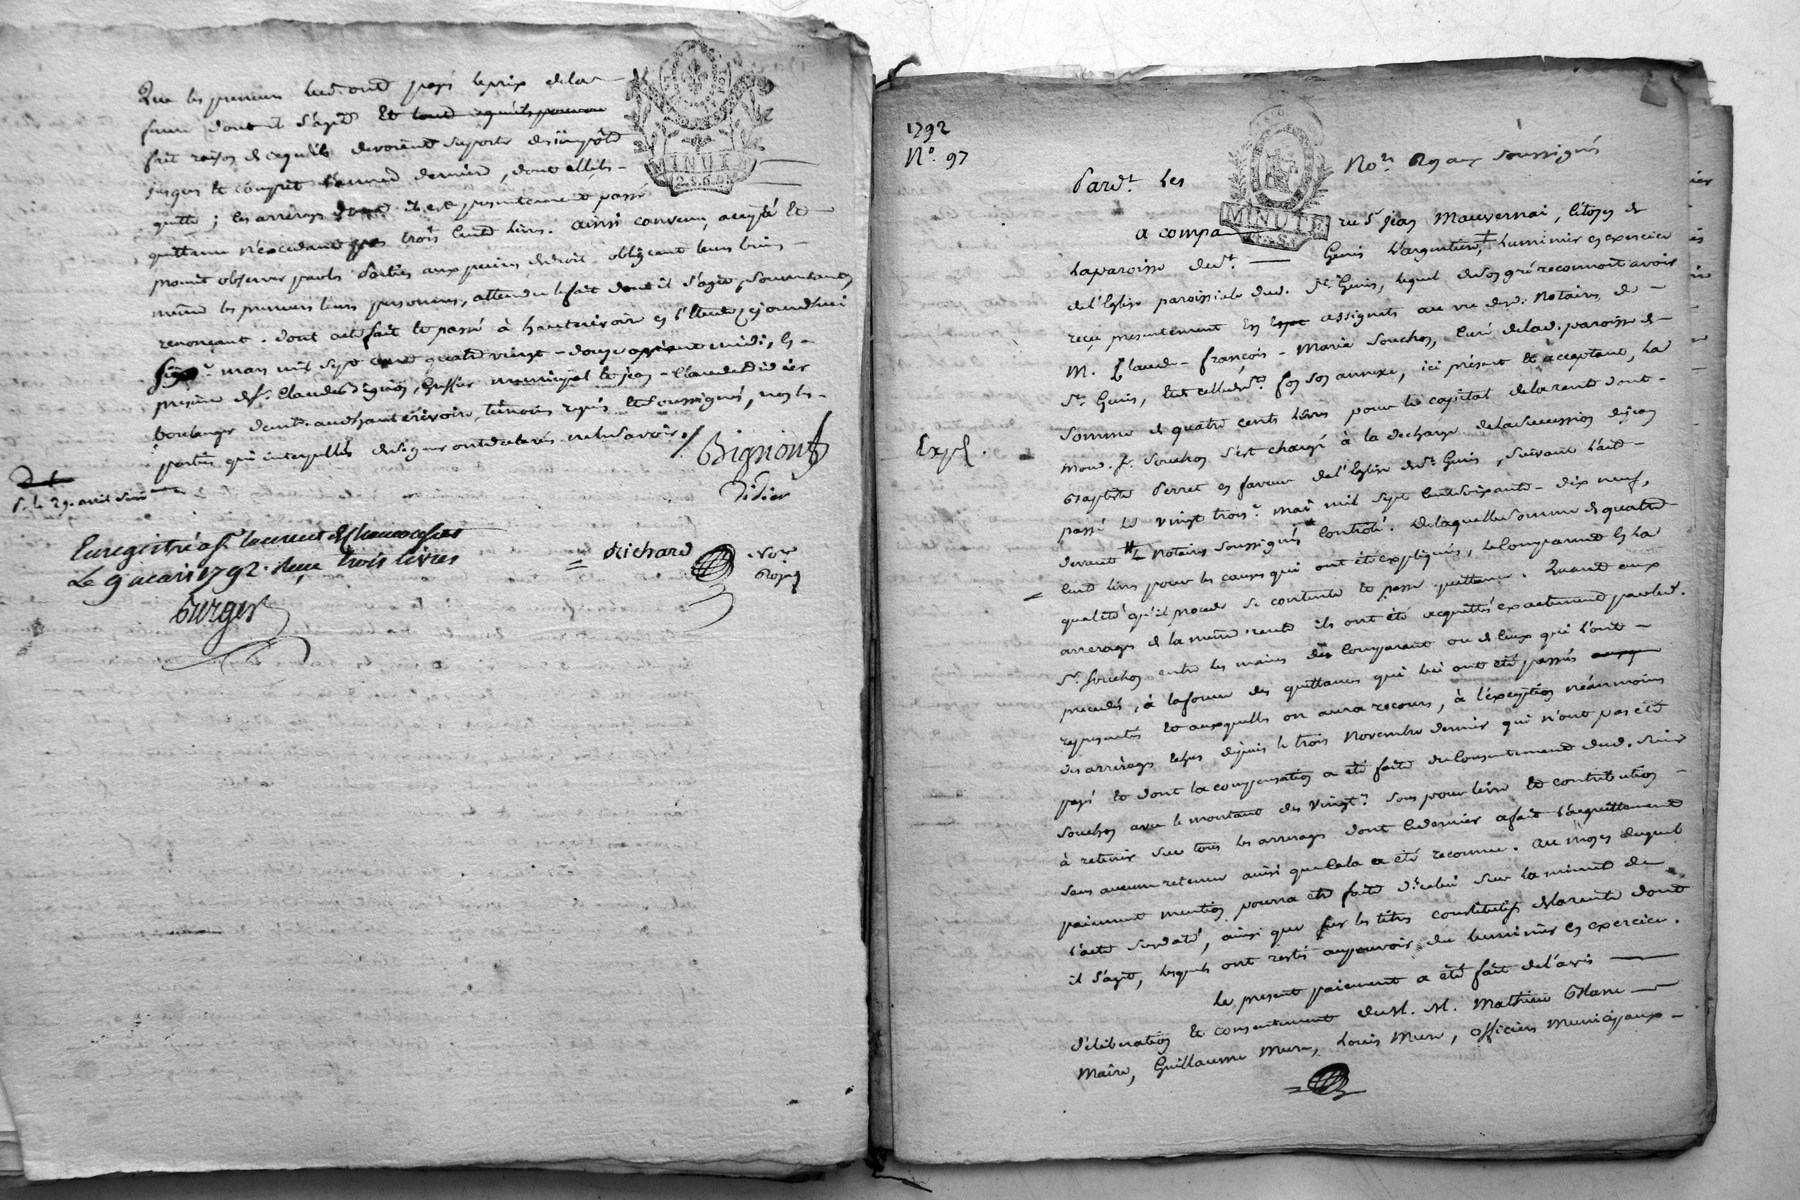 Que les premiers lieu ont payé le prix de la
faire dont il s'agit et
fait raison de ce qu'ils devoient suporter des impôts
jusques et compris l'année derniere, dont elle les
quitte; les arrerages il est présentement passé
quittance n'excedant pas trois cent livres. ainsi convenu, accepté et
promit observer par les parties aux peines de droit, obligeant leurs biens
même les premiers leurs personnes, attendu le fait dont il s'agit, soumettants
renonçant. dont acte fait et passé à hauterivoire en l'Etude cejourdhui
mars mil sept cent quatre vingt-douze midi, en
présence de Sr. Claude Bignon, Greffier municipal et jean-Claude Didier
boulanger dem.t audit hauterivoire, témoins requis et soussignés, non les
parties qui interpellés de signer ont declarés ne le savoir.
Bignon
Didier
P. le 29 avril
Enregistré a St laurent de Chamousset
Le 9 mars 1792. Reçu trois livres
Berger
Richard
No.re
Royal
MINUTE
2.S.6.D.
1792
N°. 97
Pardt. Les No.res Royaux Soussignés
MINUTE
a comparu Sr Jean Mauvernai, Citoyen de
la paroisse de St. Genis L'argentiere, Luminier en exercice
de l'Eglise paroissiale dud. St. Genis, lequel de son gré reconnoit avoir
reçu présentement en assignats au vu desd. Notaires de
M. Claude-françois-Marie Souchon, Curé de lad. paroisse de
St. Genis, et celle de St. son annexe, ici présent et acceptant, la
Somme de quatre cents livres pour le capital de la rente dont
mond. Sr. Souchon s'est chargé à la decharge de la succession de jean
Baptiste Perret en faveur de l'Eglise de St. Genis, suivant l'acte
Exp.
passé le vingt trois mai mil sept cent soixante-dix neuf,
devant Notaires soussignés Controlé. De laquelle somme de quatre
cent livres pour les causes qui ont été expliquées, le Comparant en la
qualité qu'il procede se contente et passe quittance. Quant aux
arrerages de la même rente ils ont été acquittés exactement par led.
Sr. Souchon entre les mains du Comparant ou de ceux qui l'ont
précédé, à la forme des quittances qui lui ont été passés
représentés et auxquelles on aura recours, à l'exception néanmoins
des arrérages échus depuis le trois Novembre dernier qui n'ont pas été
payé et dont la compensation a été faite du Consentement dud. Sieur
Souchon avec le montant des vingt. Sous pour livre et contribution
à retenir sur tous les arrerages dont ce dernier a fait l'acquittement
sans aucune retenue ainsi que cela a été reconnu. Au moyen duquel
paiement mention pourra etre faite d'icelui sur la minute de
l'acte susdaté, ainsi que sur les titres constitutifs de la rente dont
il s'agit, lesquels ont restés au pouvoir du luminier en exercice.
Le présent paiement a été fait de l'avis
déliberation et consentement de M. M. Mathieu Blanc
Maire, Guillaume Mure, Louis Mure, officiers Municipaux